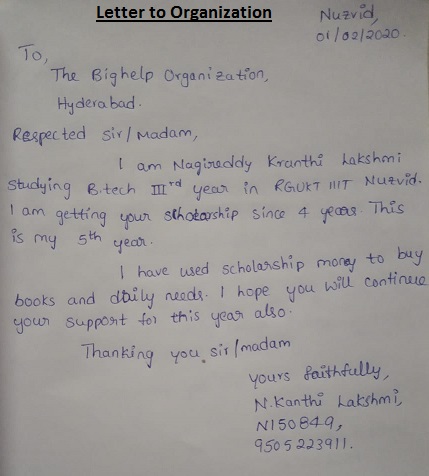 Letter to Organization
Nuzvid,
01/02/2020.
To,
The Bighelp Organization,
Hyderabad.
Respected Sir/Madam,
I am Nagireddy Kranthi Lakshmi
Studying B.tech IIIrd year in RGUKT IIIT Nuzvid.
I am getting your scholarship since 4 years. This
is my 5th year.
I have used scholarship money to buy
books and daily needs. I hope you will continue
your support for this year also.
Thanking you sir/madam
yours faithfully,
N.Kanthi Lakshmi,
N150849,
9505223911.